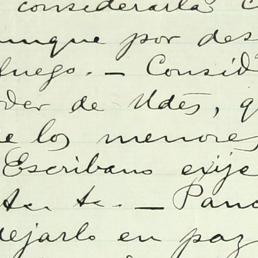 considerarla c
unque por des
fuego. — Consid
der de Udes, q
e los menores
Escribano exije
te. te. — Panc
dejarlo en paz